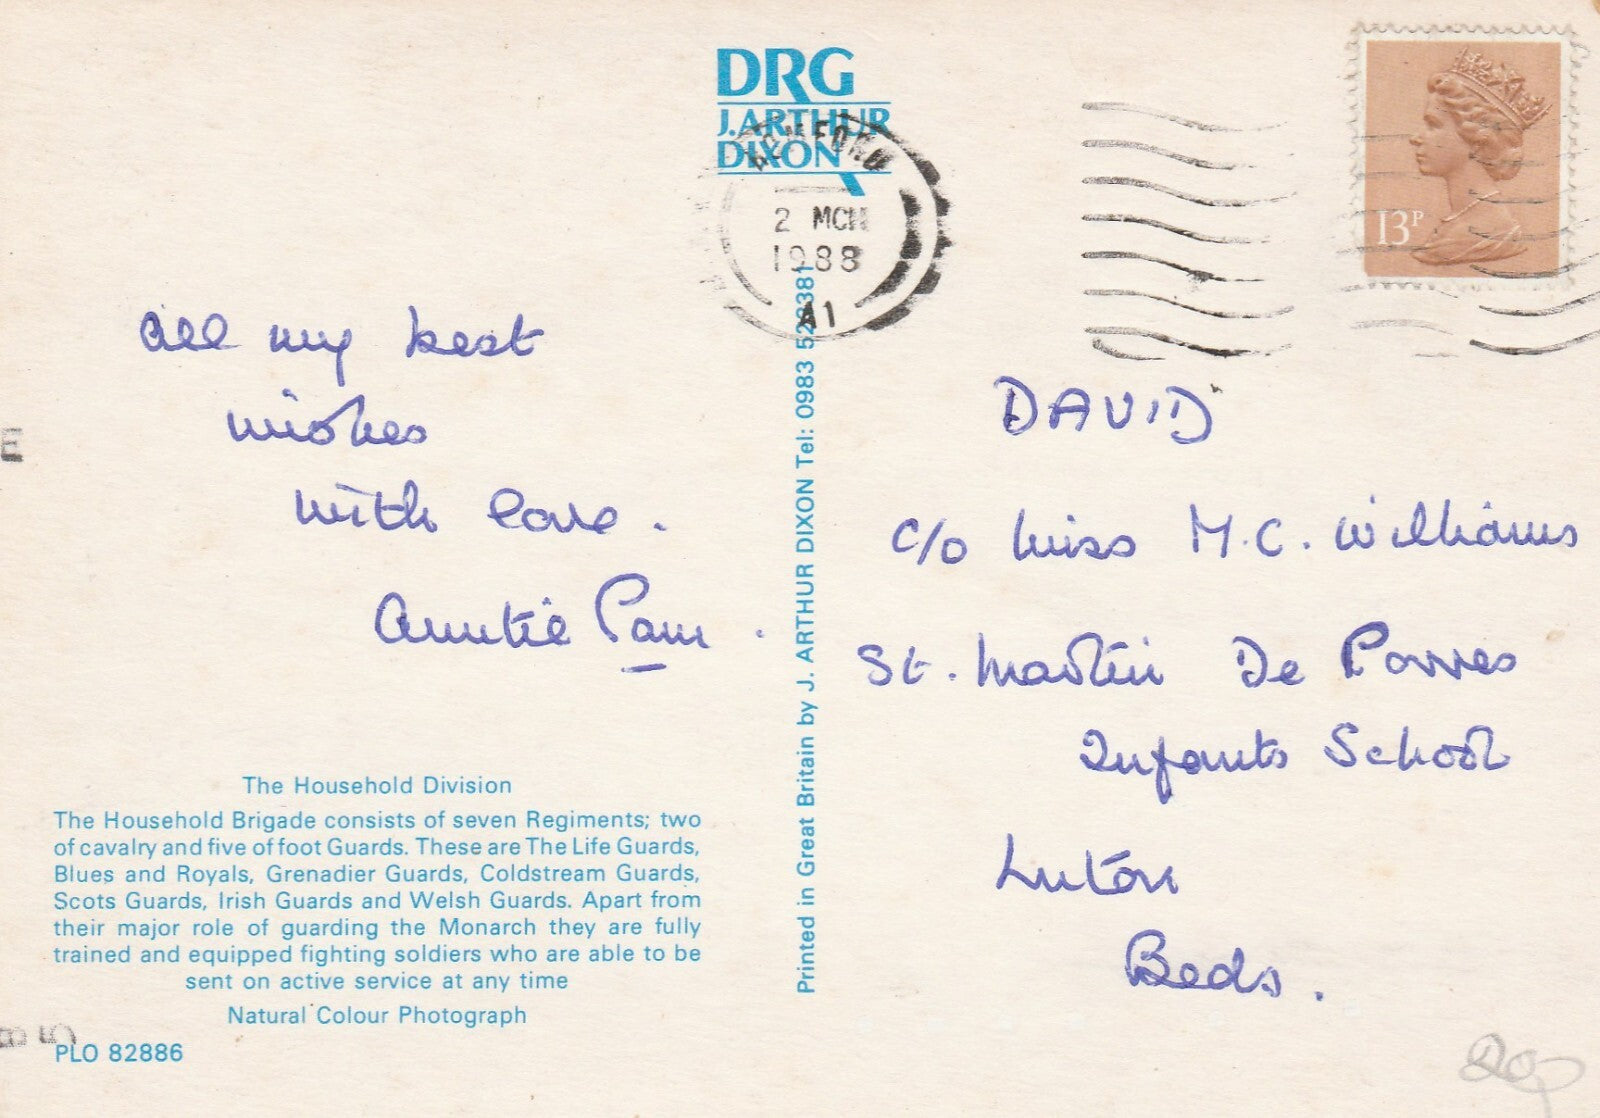 DRG
J.ARTHUR
DIXON
ROMFORD
2 MCH
1988
A1
13P
all my best
wishes
with love.
Auntie Pam.
DAVID
c/o Miss M.C. Williams
St. Martin De Porres
Infants School
Luton
Beds.
Printed in Great Britain by J. ARTHUR DIXON Tel: 0983 523381
The Household Division
The Household Brigade consists of seven Regiments; two
of cavalry and five of foot Guards. These are The Life Guards,
Blues and Royals, Grenadier Guards, Coldstream Guards,
Scots Guards, Irish Guards and Welsh Guards. Apart from
their major role of guarding the Monarch they are fully
trained and equipped fighting soldiers who are able to be
sent on active service at any time
Natural Colour Photograph
PLO 82886
20p